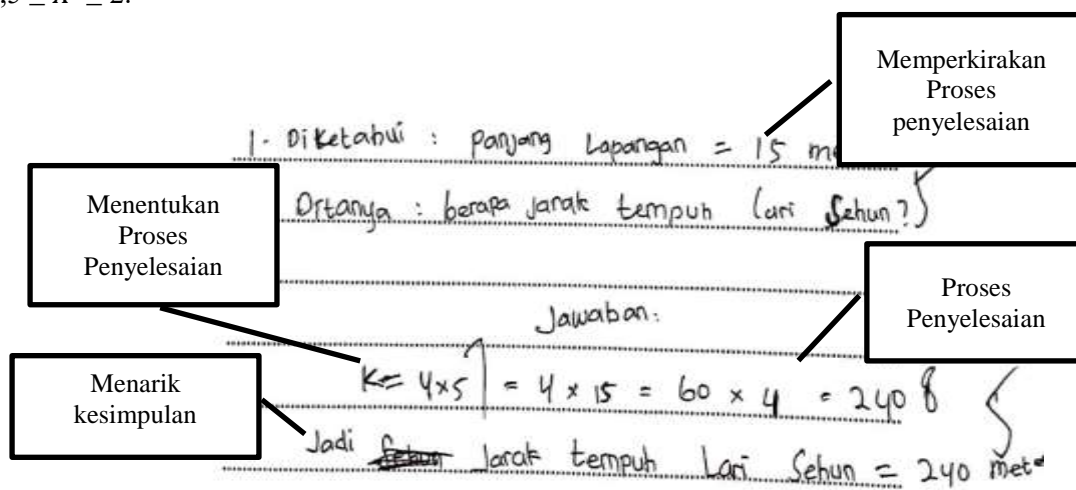 Memperkirakan
Proses
penyelesaian
1. Diketahui : panjang Lapangan = 15 me
Menentukan
Proses
Penyelesaian
Ditanya : berapa jarak tempuh lari Sehun?
Proses
Penyelesaian
Jawaban:
K = 4×5 = 4 × 15 = 60 × 4 = 240
Menarik
kesimpulan
Jadi Jarak tempuh Lari Sehun = 240 mete